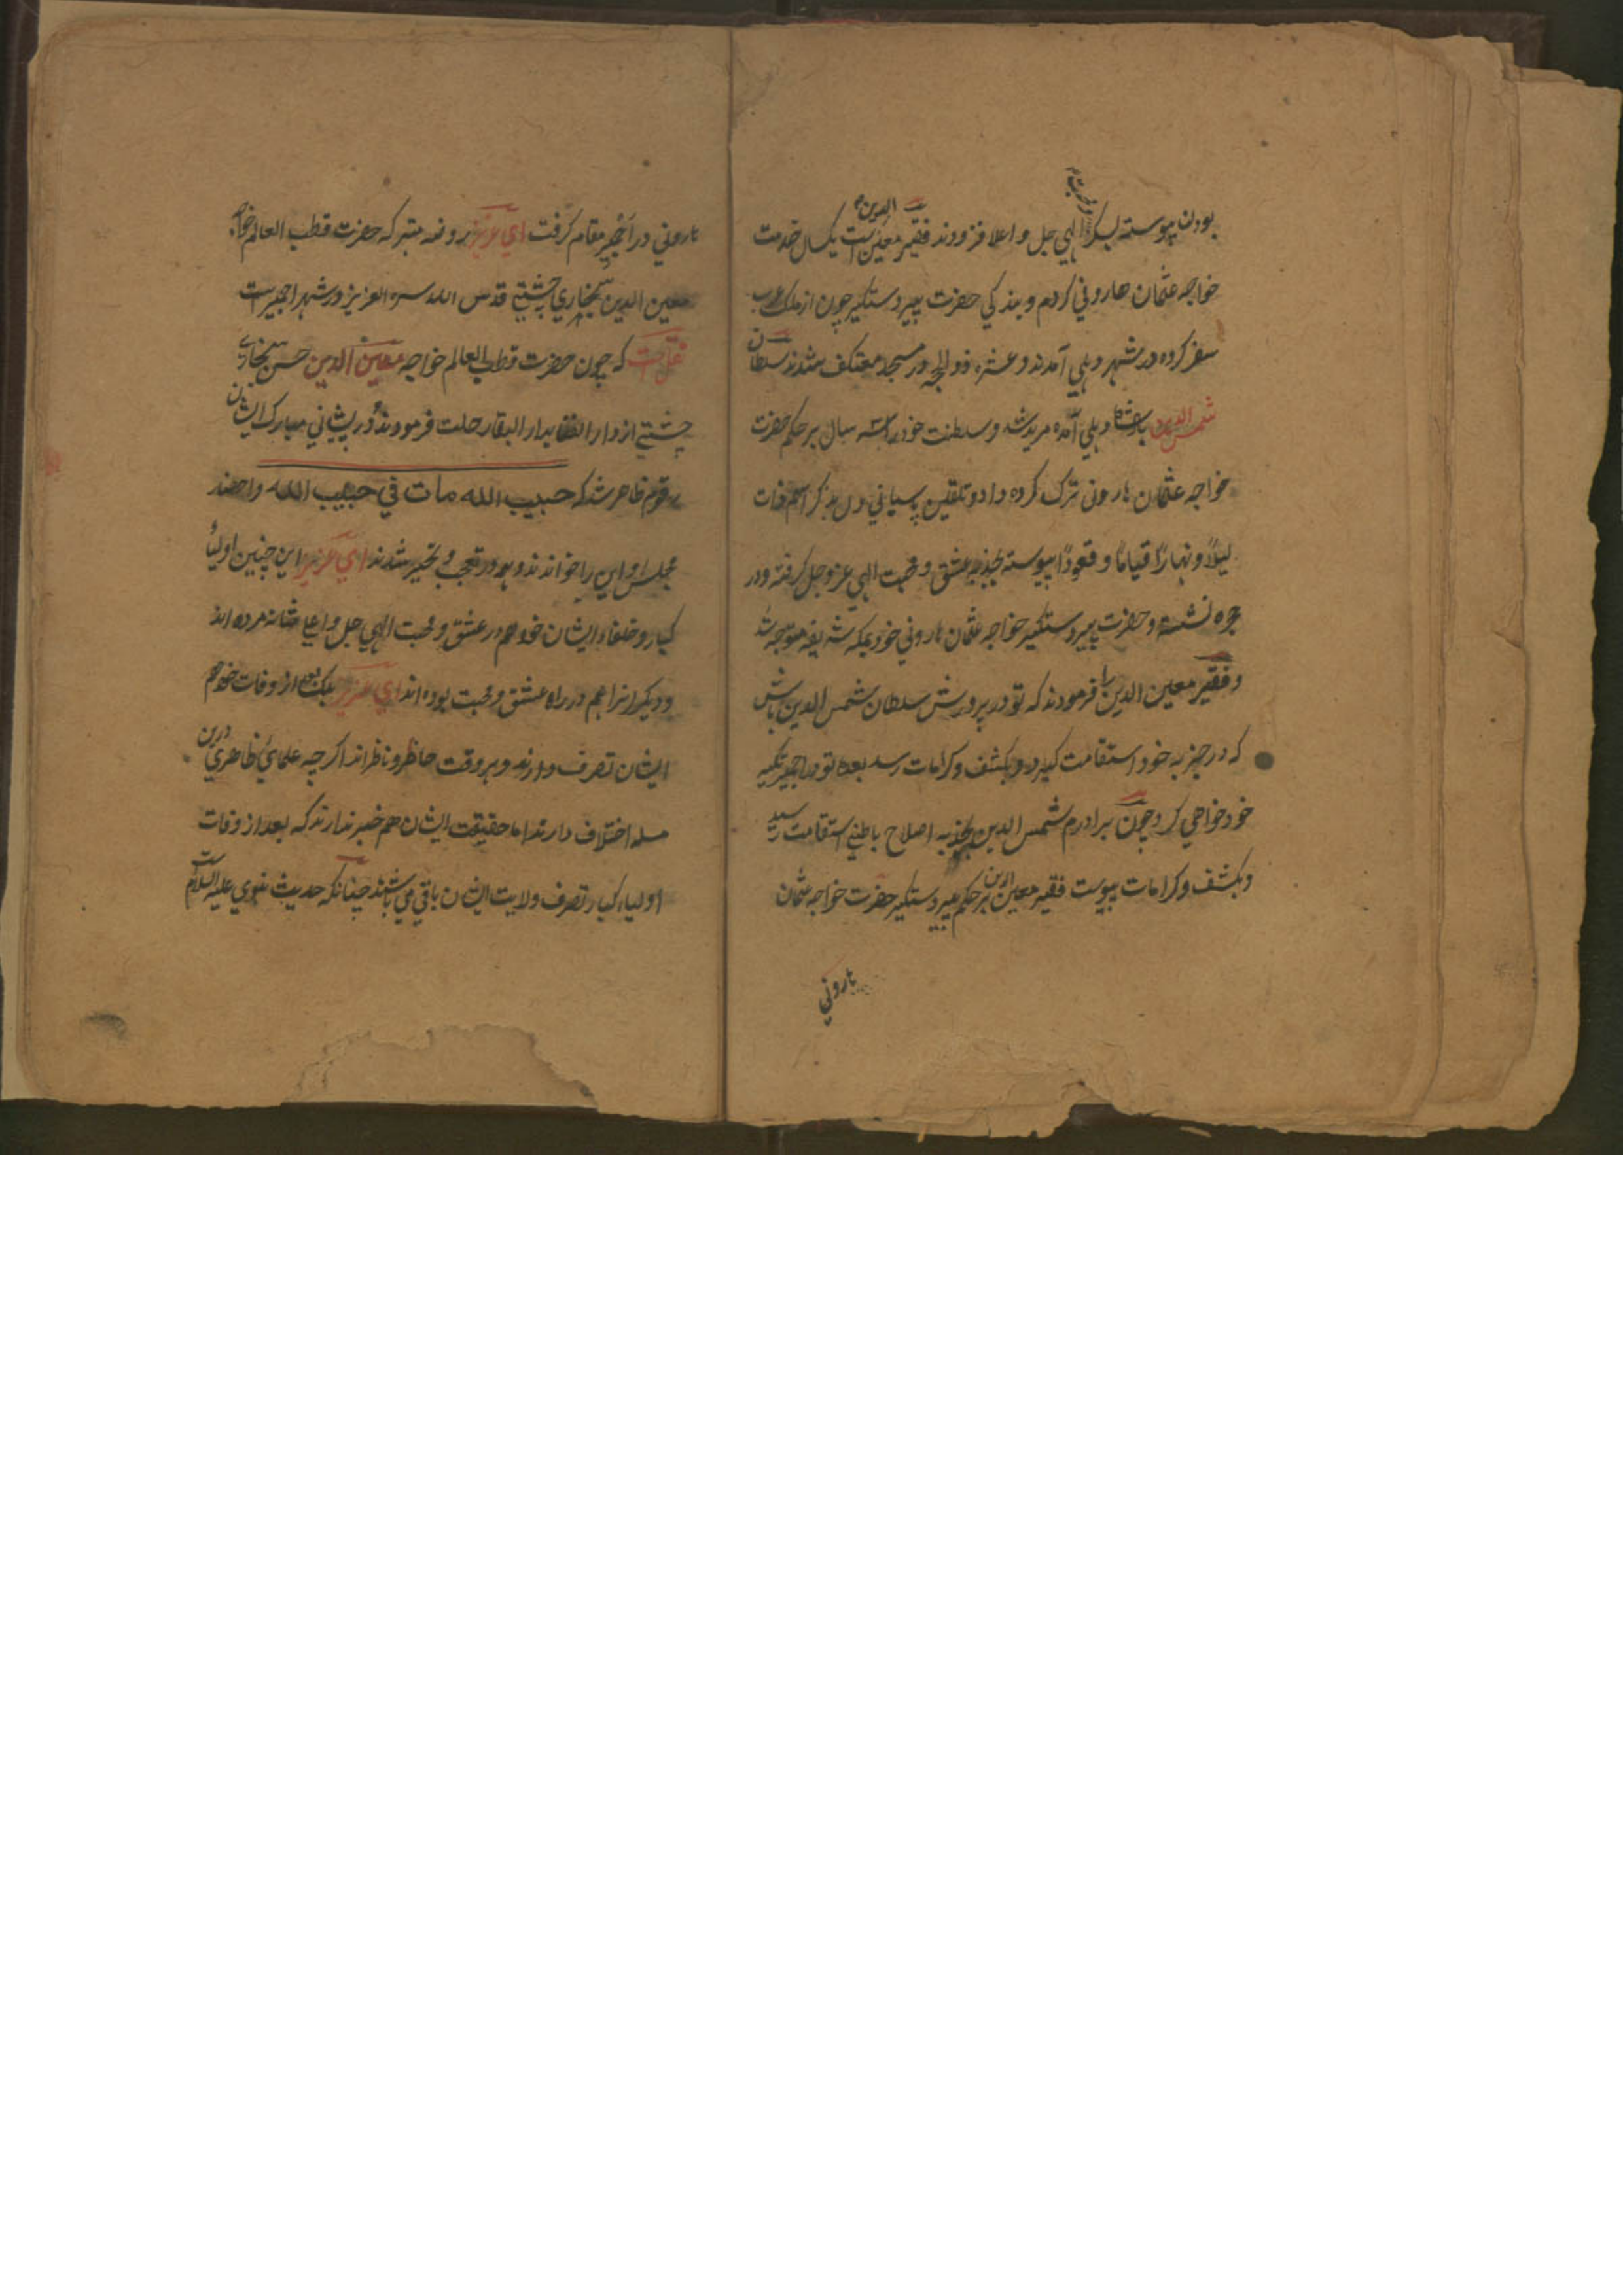 بودن پیوسته بسکر الهي جل و اعلا فزودند فقیر معین الدین است یکسال خدمت
خواجه عثمان هاروني کردم و بندکي حضرت پیر دستکیر چون از ملک عرب
سفر کرده در شهر دهلي آمدند و عشره ذوالحجه در مسجد معتکف شدند سلطان
شمس الدین بادشاه دهلي آمده مرید شد و سلطنت خود را سه سال بر حکم حضرت
خواجه عثمان هارونی ترک کرده داد و تلقین پاسباني دل بذکر اسم ذات
لیلاً و نهاراً قیاماً و قعوداً پیوسته بجذبه عشق و محبت الهي عز و جل کرفته و در
حجره نشسته و حضرت پیر دستکیر خواجه عثمان هاروني خود بمکه شریفه متوجه شد
و فقیر معین الدین را فرمودند که تو در پرورش سلطان شمس الدین باش
که در جذبه خود استقامت کیرد و بکشف و کرامات رسد بعده تو در اجمیر تکیه
خود خواهي کرد چون برادرم شمس الدین بجذبه اصلاح باطني استقامت رسید
و بکشف و کرامات پیوست فقیر معین الدین بر حکم پیر دستکیر حضرت خواجه عثمان
هاروني
هاروني در اجمیر مقام کرفت اي عزیز روضه متبرکه حضرت قطب العالم خواجه
معین الدین سنجاري چشتي قدس الله سره العزیز در شهر اجمیر است
نقلست که چون حضرت قطب العالم خواجه معین الدین حسن سنجاري
چشتي از دار الفنا بدار البقا رحلت فرمودند در پیشاني مبارک ایشان
رقوم ظاهر شد که حبیب الله مات في حبیب الله و احضار
مجلس او این را خواندند و همه در تعجب و تحیر شدند اي عزیز این چنین اولیاء
کبار و خلفاء ایشان خود هم در عشق و محبت الهي جل و اعلا شانه مرده اند
و دیکر انرا هم در راه عشق و محبت بوده اند اي عزیز بلکه بعد از وفات خود هم
ایشان تصرف دارند و هر وقت حاظر و ناظر اند اکر چه علماي ظاهري درین
مسله اختلاف دارند اما حقیقت ایشان هم خبر ندارند که بعد از وفات
اولیاء کبار تصرف ولایت ایشان باقي مي باشد چنانکه حدیث نبوي علیه السلام است